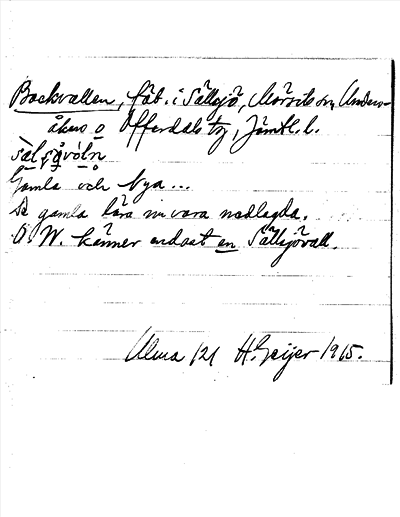 Backvallen, fäb. i Sällsjö, Mörsils sn, Unders-
åkers o Offerdals tg, Jämtl. l.
Gamla och Nya...
De gamla lära nu vara nedlagda.
O. W. känner endast en Sällsjövall.
Ulma 121 H. Geijer 1915.